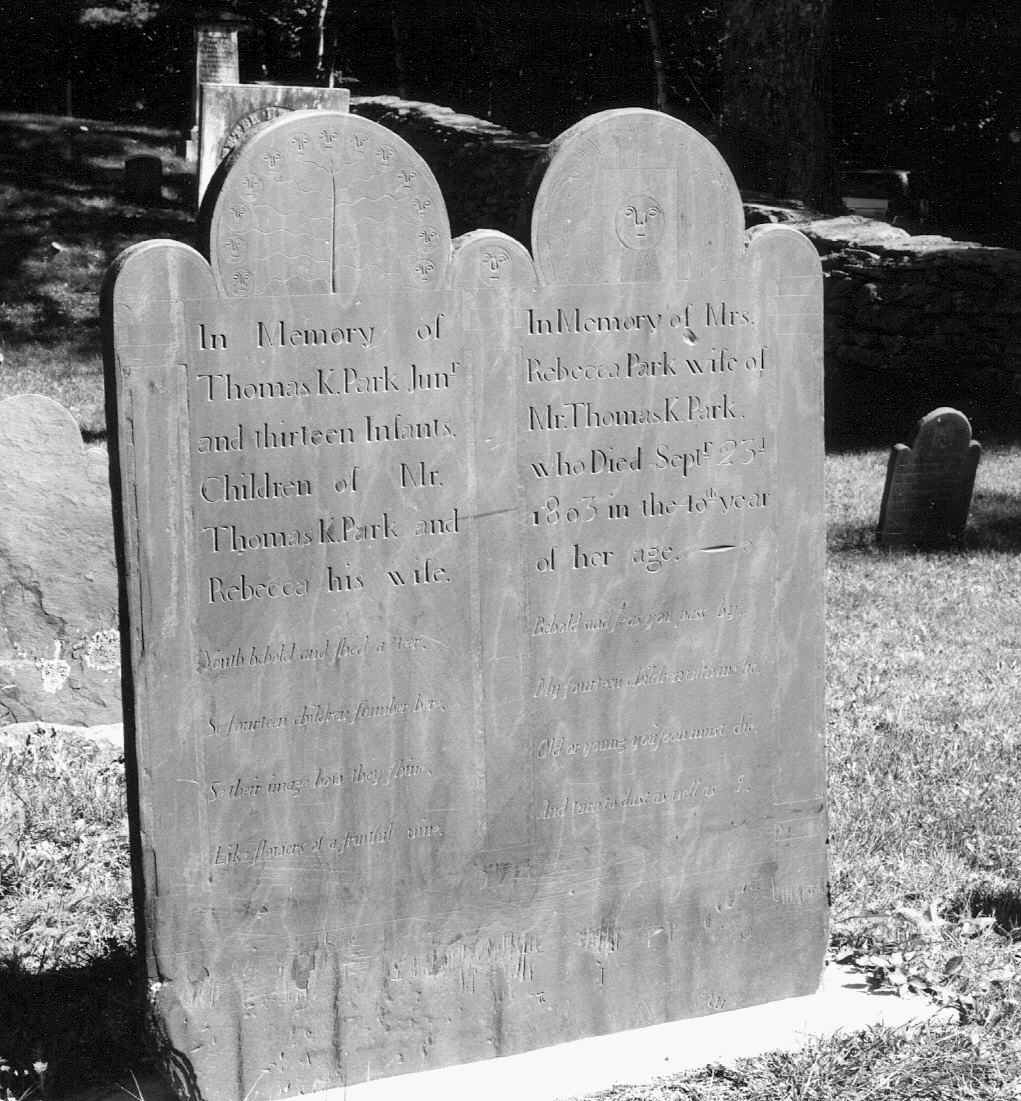 In Memory of
Thomas K. Park Junʳ
and thirteen Infants,
Children of Mr.
Thomas K. Park and
Rebecca his wife.
Youth behold and shed a tear,
Se fourteen children slumber here,
Se their image how they shine,
Like flowers of a fruitful vine.
In Memory of Mrs.
Rebecca Park wife of
Mr. Thomas K. Park.
who Died Septʳ 23ᵈ
1803 in the 40ᵗʰ year
of her age.
Behold and se as you pass by,
My fourteen children with me lie,
Old or young you soon must die,
And turn to dust as well as I.